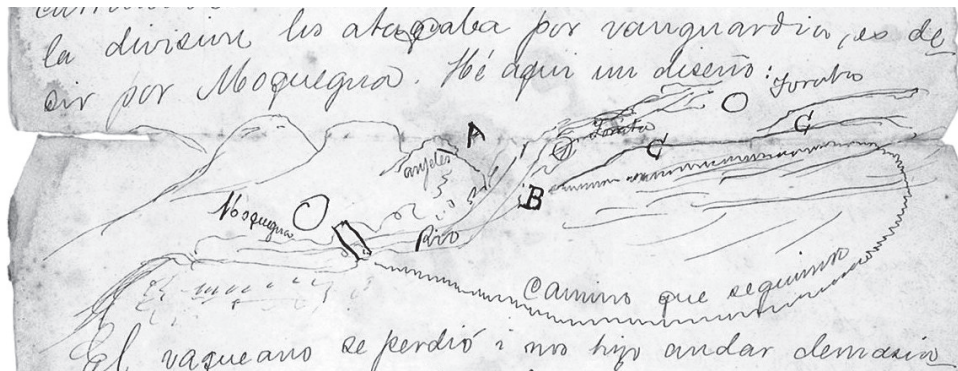 la division los atacaba por vanguardia, es de
sir por Moquegua. Hé aqui un diseño:
Torata
A
C
angeles
C
B
Moquegua
Rio
Camino que seguimos
El vaqueano se perdió i nos hizo andar demasia